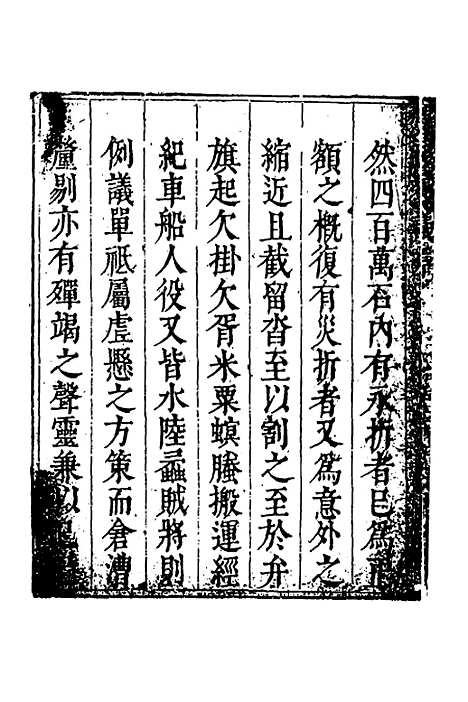 然四百萬石內有永折者已爲正
額之概復有災折者又爲意外之
縮近且截留沓至以割之至於弁
旗起欠掛欠胥米粟螟螣搬運經
紀車船人役又皆水陸蟊賊將則
例議單祗屬虛懸之方策而倉漕
釐剔亦有殫竭之聲靈兼以